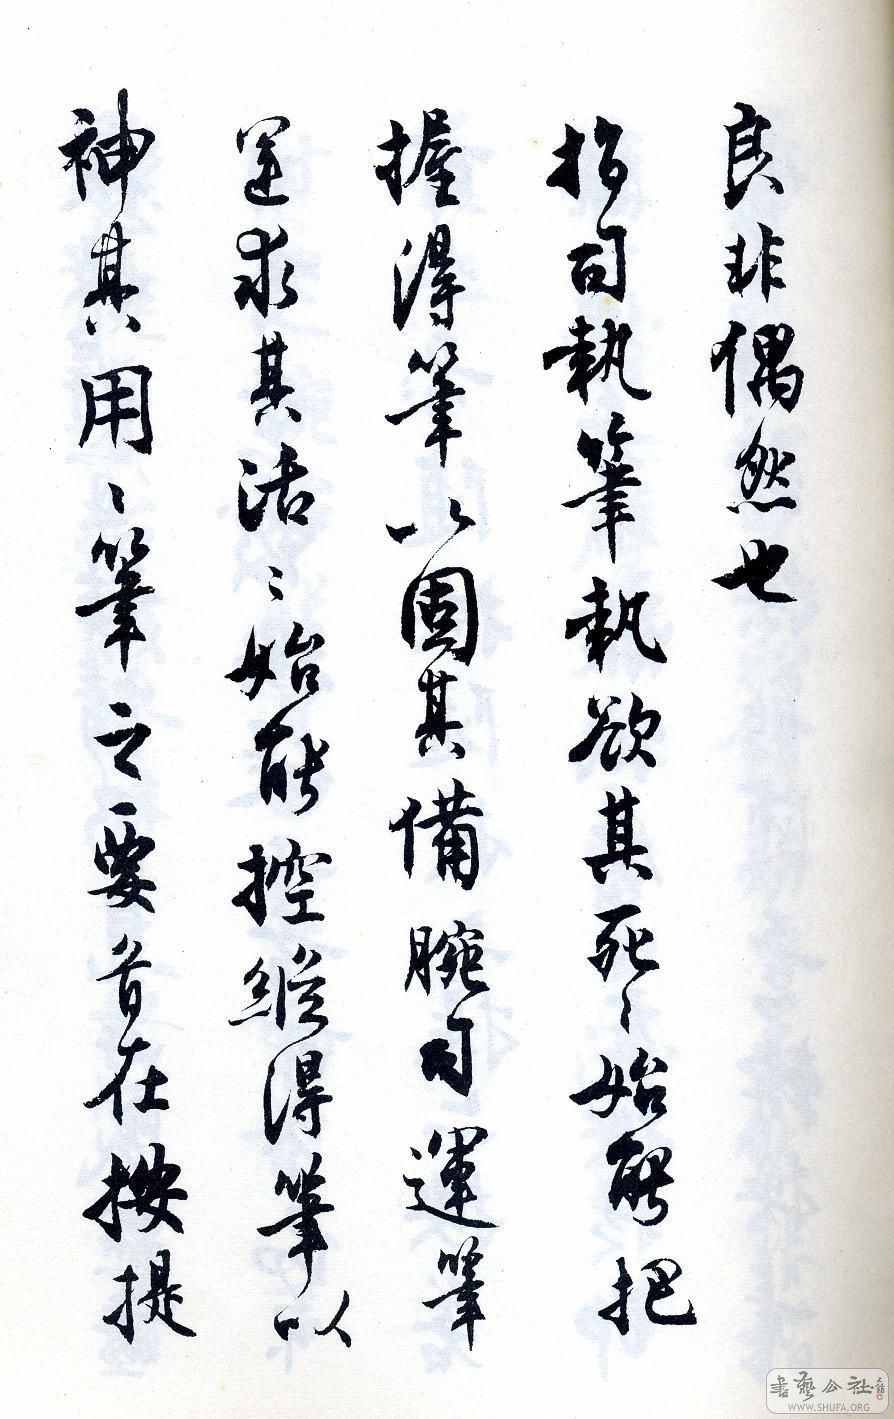 良非偶然也
指司執筆執欲其死〻始能把
握得筆以固其備腕司運筆
運求其活〻始能控縱得筆以
神其用〻筆之要首在按提
書藝公社
WWW.SHUFA.ORG